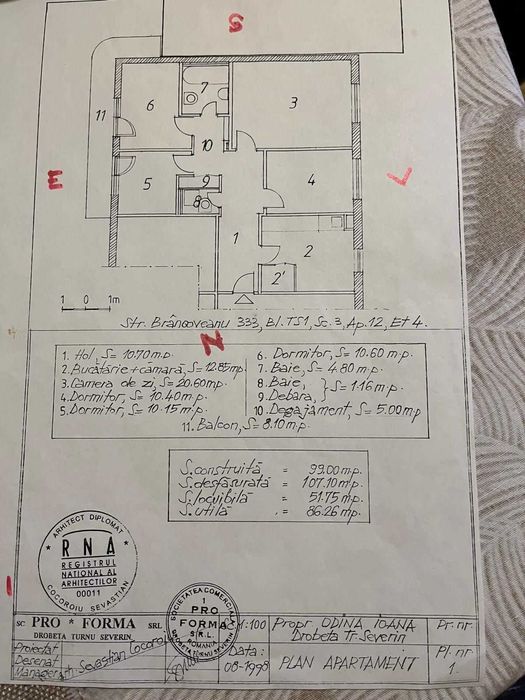 S
7
6
3
11
10
E
5
9
4
8
1
2
2'
1 0 1m
Str. Brâncoveanu 333, Bl. TS1, Sc. 3, Ap. 12, Et 4.
N
1. Hol, S= 10.70 m.p.
2. Bucătărie + cămară, S= 12.85 m.p.
3. Camera de zi, S= 20.60 m.p.
4. Dormitor, S= 10.40 m.p.
5. Dormitor, S= 10.15 m.p.
6. Dormitor, S= 10.60 m.p.
7. Baie, S= 4.80 m.p.
8. Baie,
9. Debara, } S= 1.16 m.p.
10. Degajament, S= 5.00 m.p
11. Balcon, S= 8.10 m.p.
S.construită = 99.00 m.p.
S.desfăsurată = 107.10 m.p.
S.locuibilă = 51.75 m.p.
S.utilă = 86.26 m.p.
ARHITECT DIPLOMAT
RNA
REGISTRUL
NATIONAL AL
ARHITECTILOR
00011
COCOROIU SEVASTIAN
SOCIETATEA COMERCIALA
1
PRO
FORMA
S.R.L.
ROMANIA
DROBETA TR. SEVERIN
SC PRO * FORMA SRL
DROBETA TURNU SEVERIN
Proiectat
Desenat
Manager
arh. Sevastian Cocoroiu
1:100
Data:
08-1998
Propr. ODINA IOANA
Drobeta Tr. Severin
PLAN APARTAMENT
Pr. nr.
Pl. nr.
1.